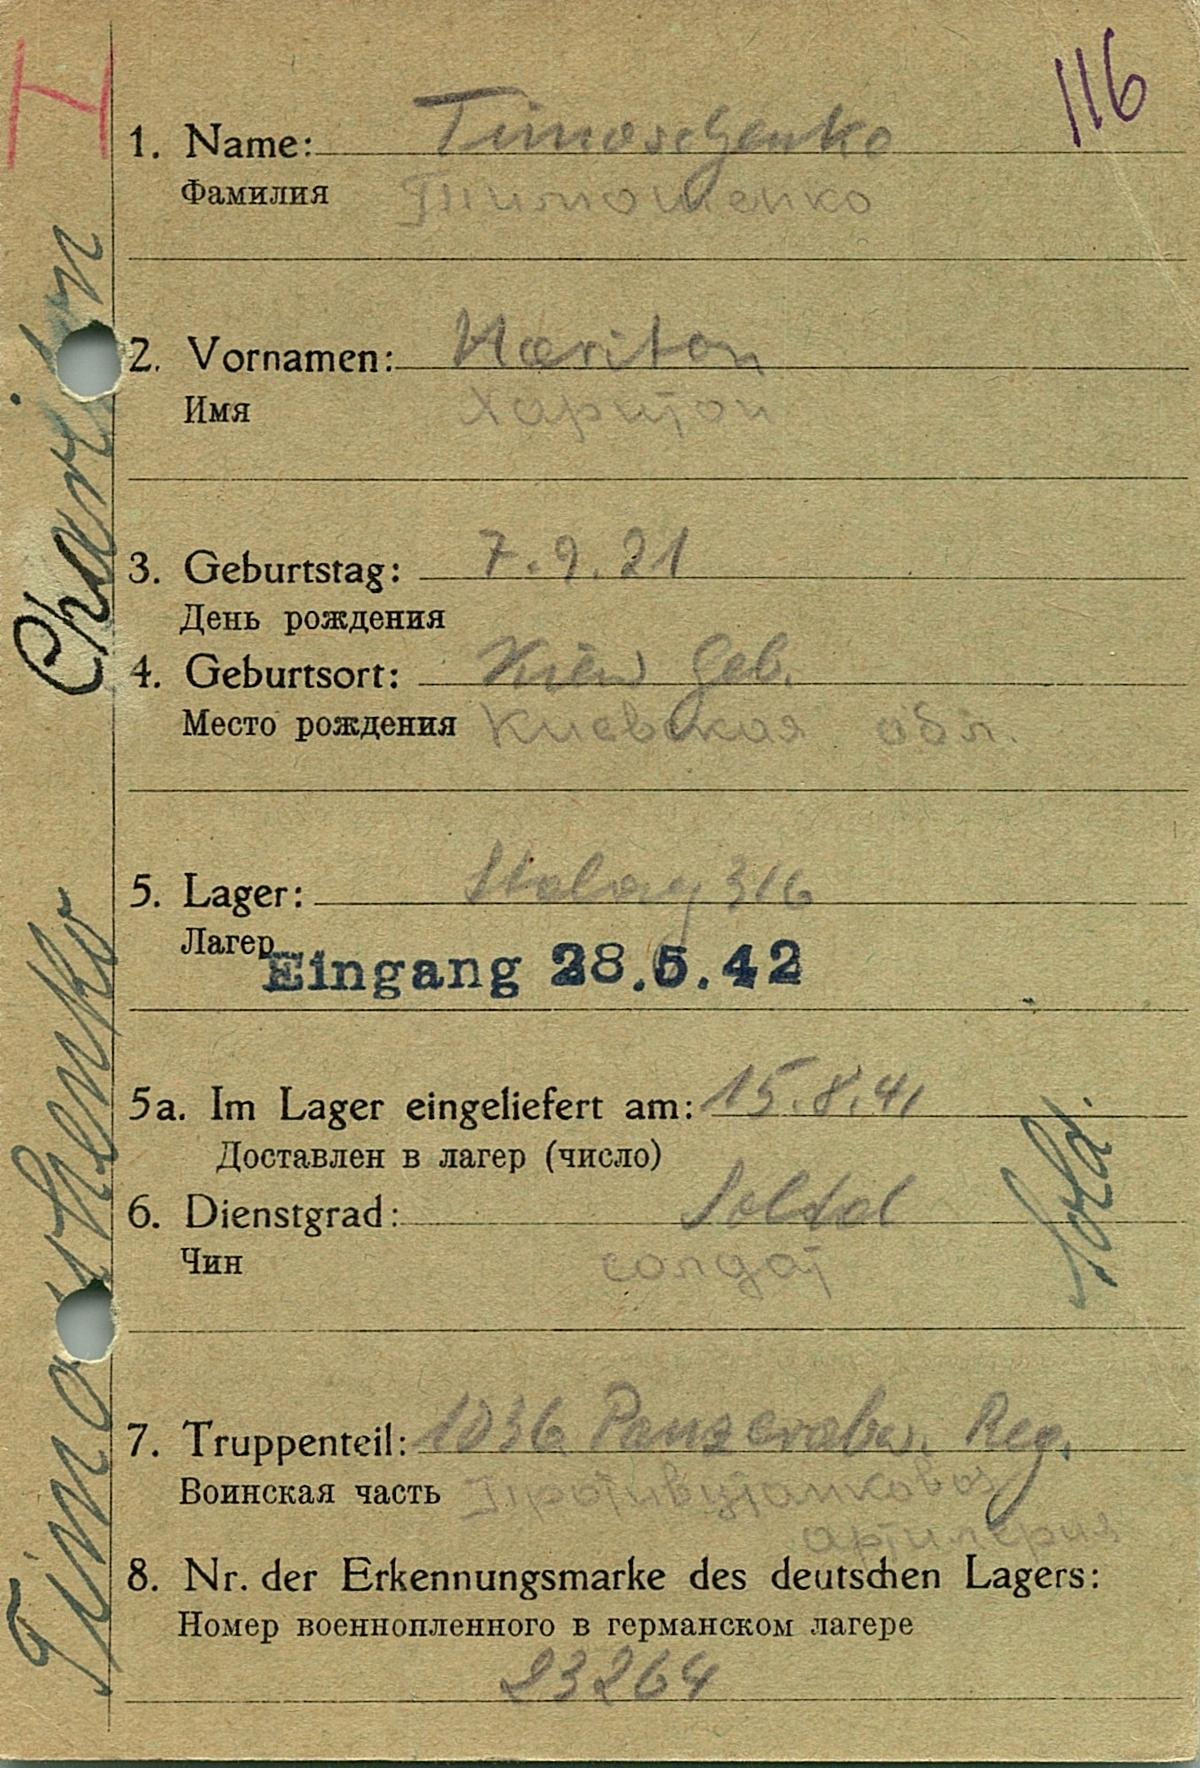 116
1. Name: Timoschenko
Фамилия Тимошенко
2. Vornamen: Hariton
Имя Харитон
3. Geburtstag: 7.9.21
День рождения
4. Geburtsort: Kiew Geb.
Место рождения Киевская обл.
5. Lager: Stalag 316
Лагер
Eingang 28.5.42
5a. Im Lager eingeliefert am: 15.8.41
Доставлен в лагер (число)
6. Dienstgrad: Soldat
Чин солдат
Sold.
7. Truppenteil: 1036 Panzerabw. Reg.
Воинская часть Противотанковоя
артилерия
8. Nr. der Erkennungsmarke des deutschen Lagers:
Номер военнопленного в германском лагере
23264
Timoschenko Chariton